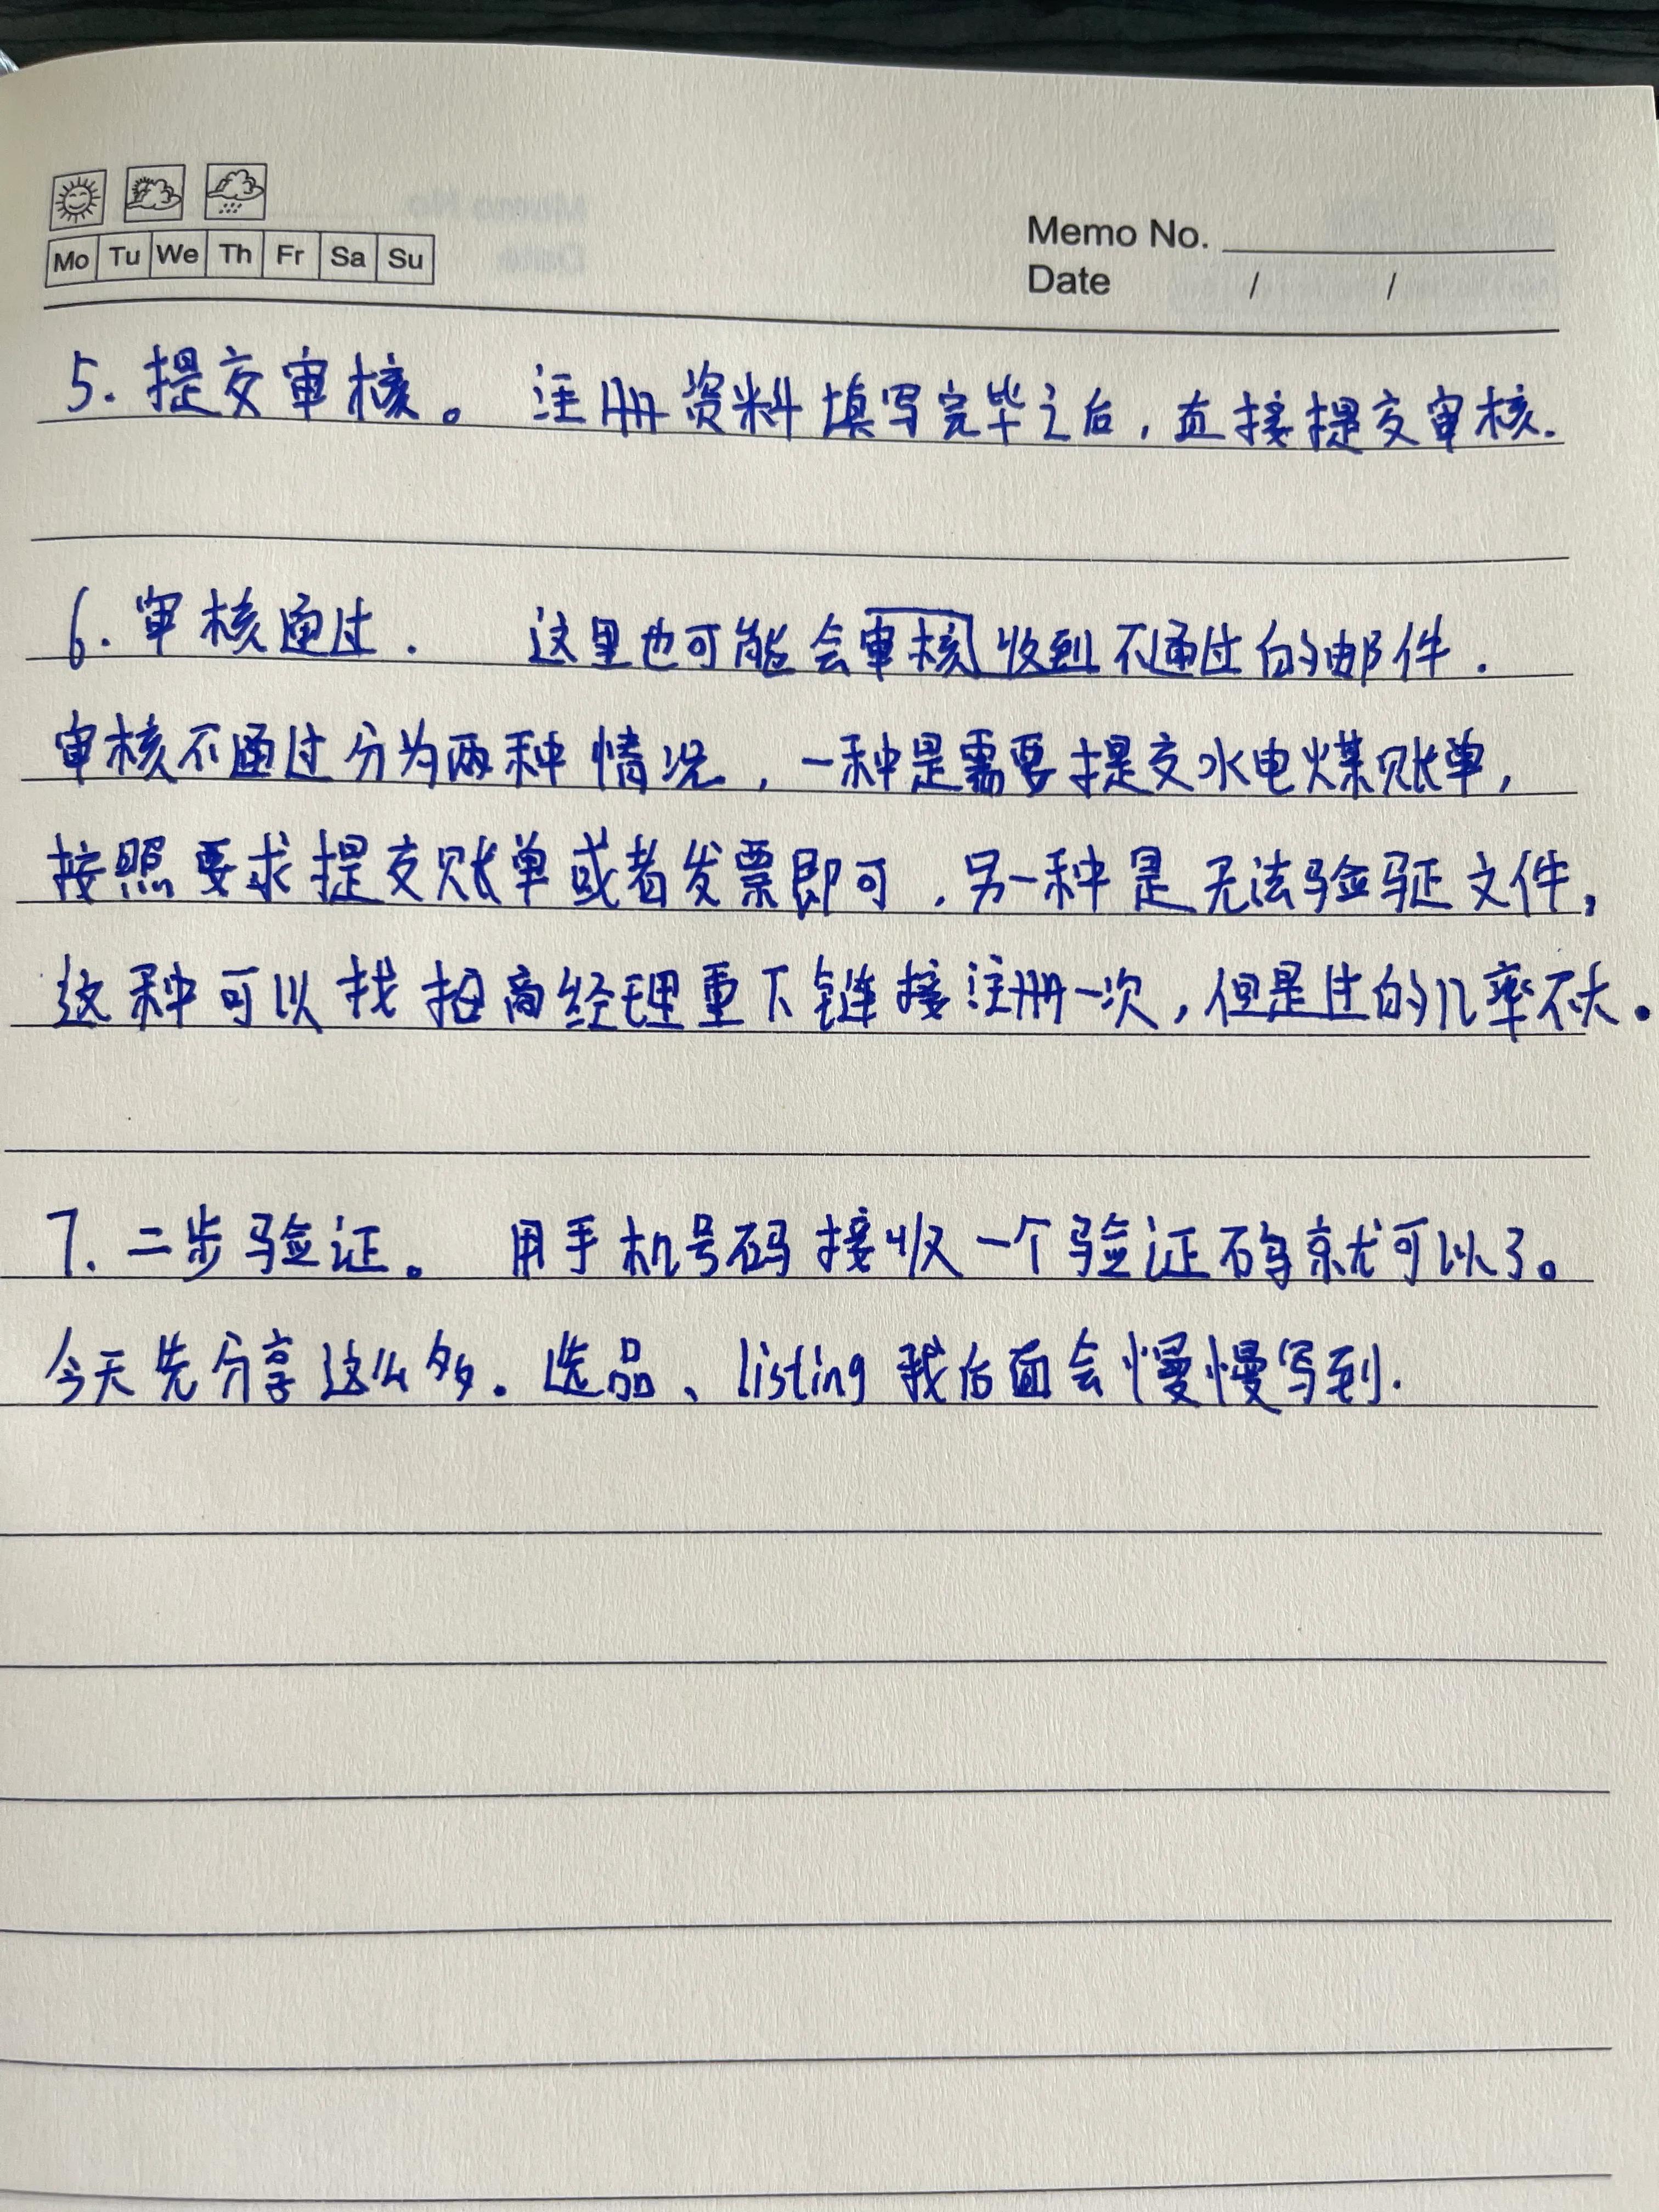 Mo Tu We Th Fr Sa Su
Memo No.
Date / /
5. 提交审核。 注册资料填写完毕之后，直接提交审核.
6. 审核通过. 这里也可能会审核收到不通过的邮件.
审核不通过分为两种情况，一种是需要提交水电煤账单，
按照要求提交账单或者发票即可.另一种是无法验证文件，
这种可以找招商经理重下链接注册一次，但是过的几率不大。
7. 二步验证。 用手机号码接收一个验证码就可以了。
今天先分享这么多. 选品、listing我后面会慢慢写到.